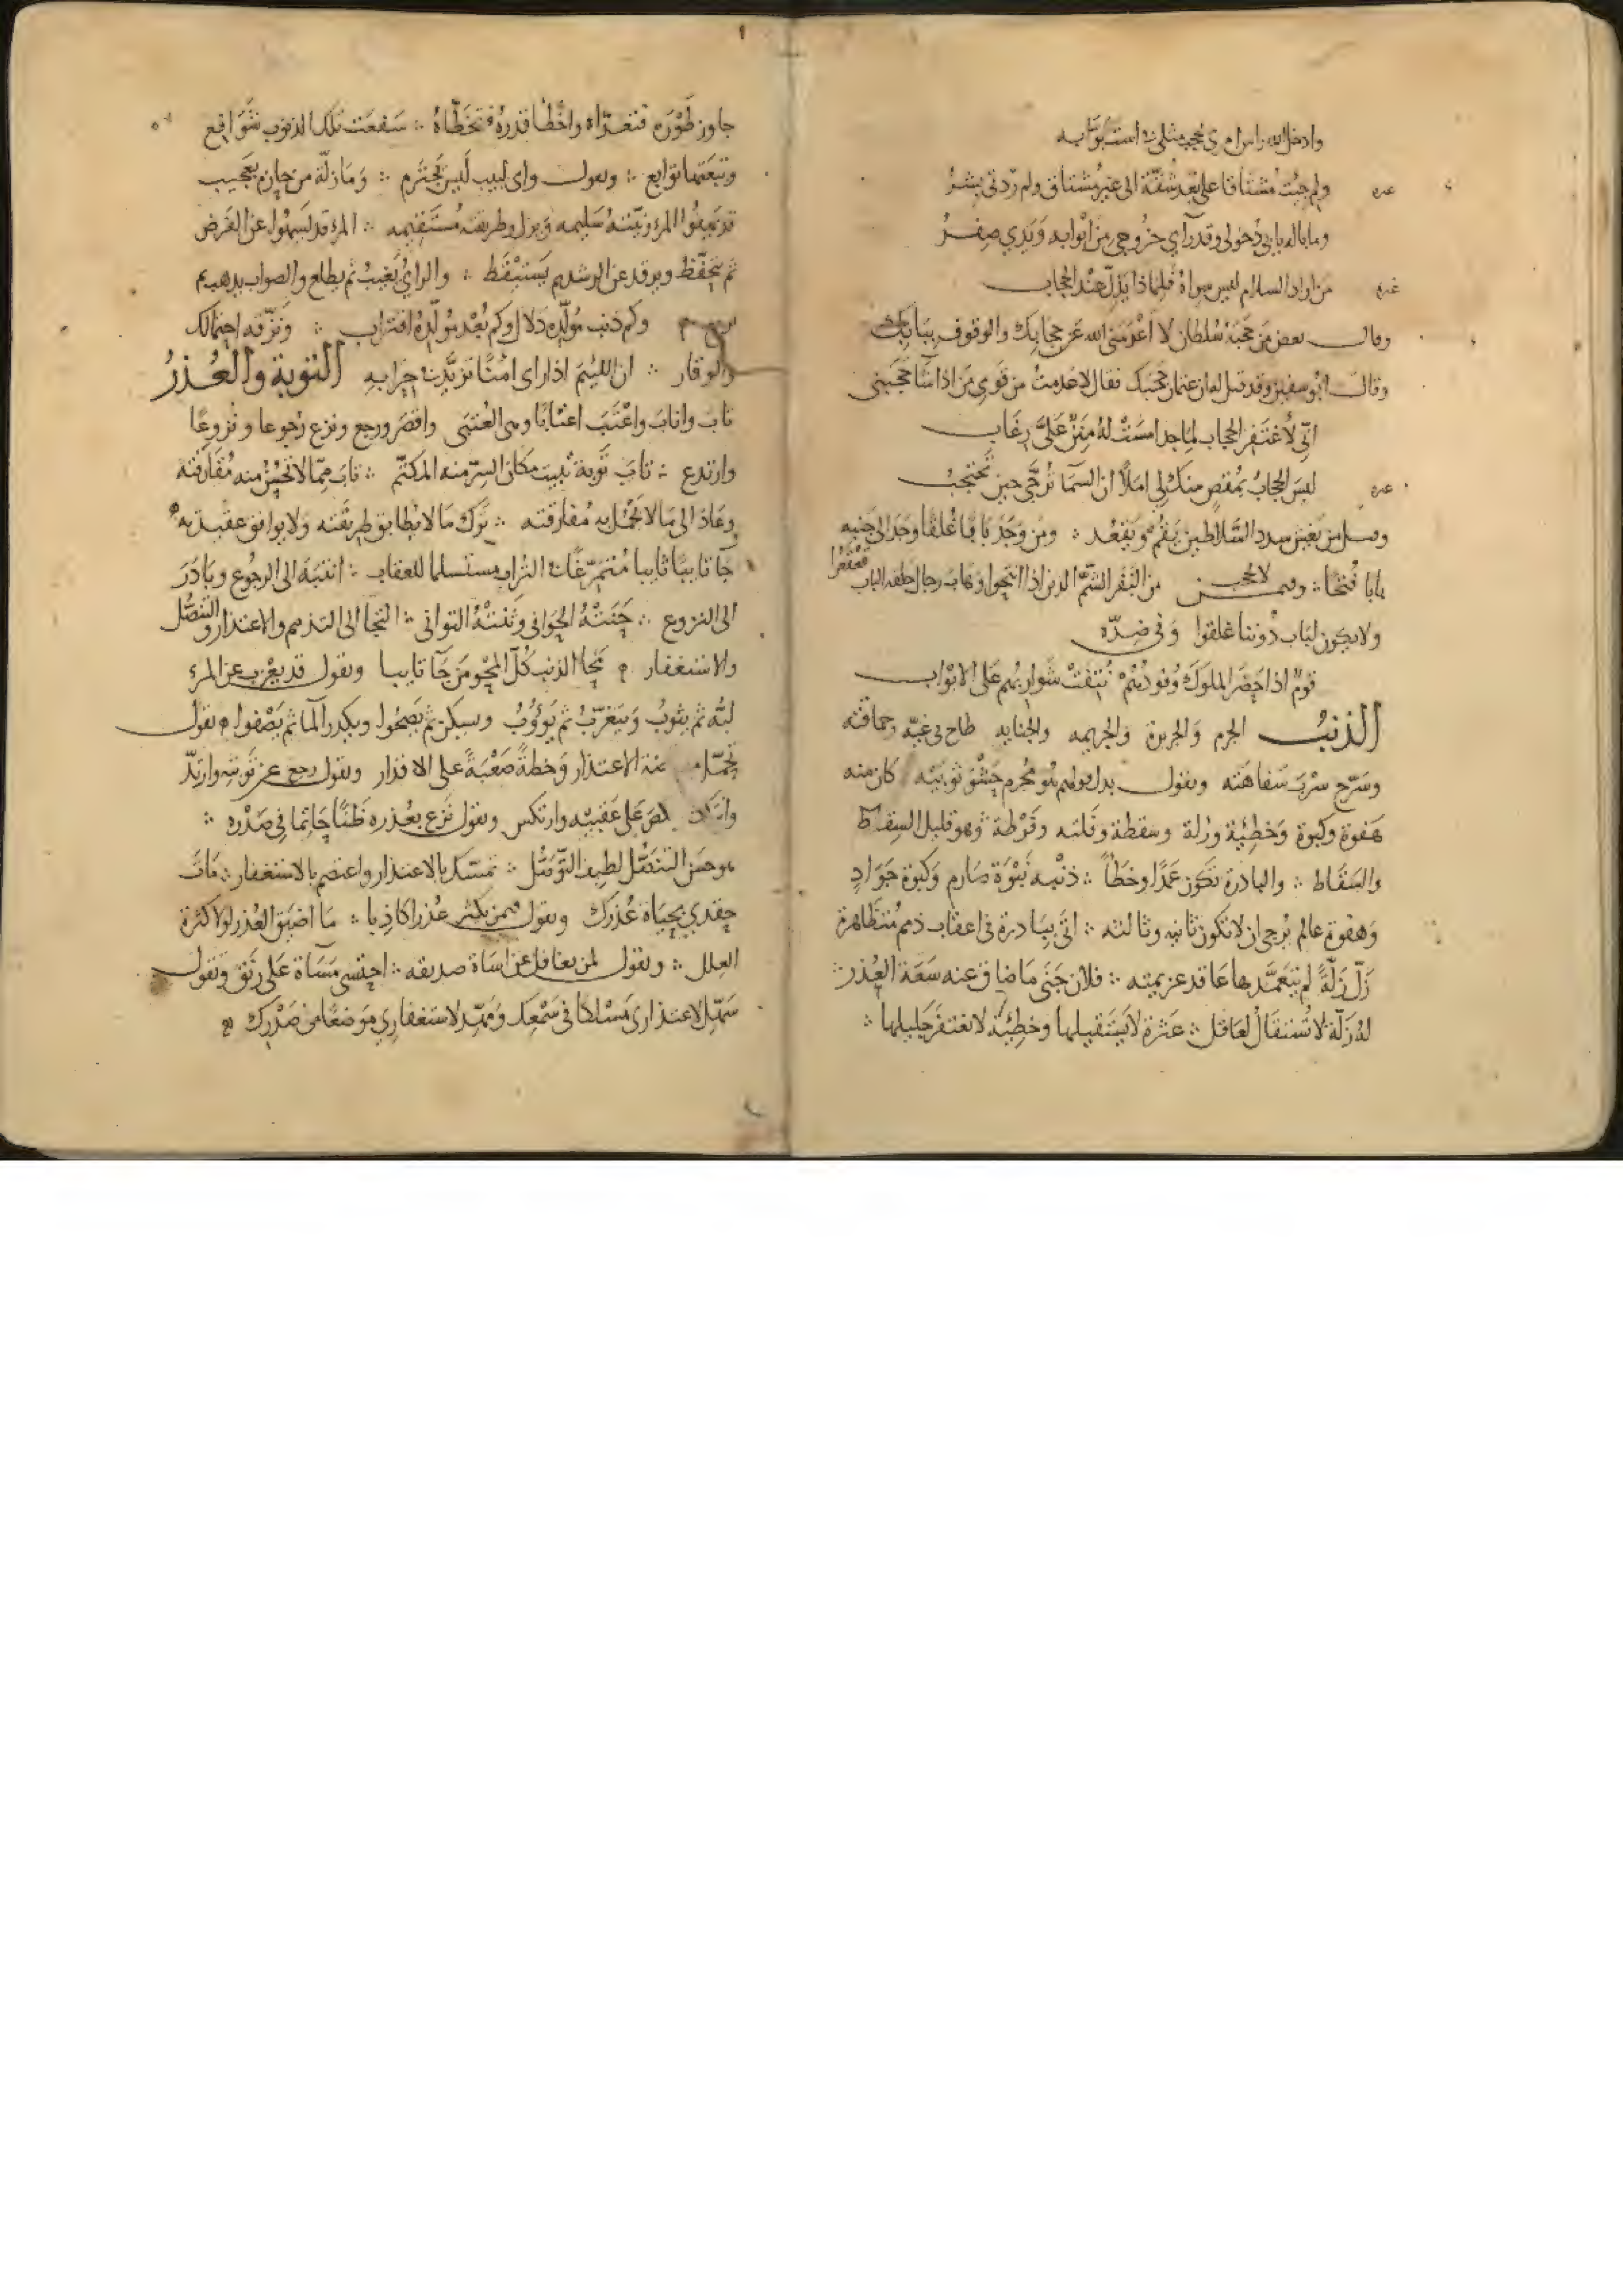 وادخل الله راس امرى يحجب مثلى في است بوابه
غيره ولم جيت مشتاقا على بعد شقة الى غير مشتاق ولم ردنى بشر
وما باله يابى دخولى وقد رآى خروجى من ابوابه ويدي صفر
غيره من اراد السلام ليس سواه فلماذا يذل عند الحجاب
وقال بعض من حجبه سلطان لا اعدمنى الله عن حجابك والوقوف ببابك
وقال ابو سفين وقد قيل له ان عثمان حجبك فقال لا عدمت من قومي من اذا شا حجبنى
انى لاغتفر الحجاب لماجد امست له منن على رغاب
غيره ليس الحجاب بمقص منك لي املا ان السما ترجى حين تحتجب
وقيل من يغش سدد السلاطين يقم ويقعد ومن وجد بابا غلقا وجد الى جنبه
بابا فتحا وفيمن لا يحجب من النفر الشم الذين اذا انتجوا وهاب رجال حلقة الباب قعقعوا
ولا يكون لباب دوننا غلقوا وفى ضده
قوم اذا حضر الملوك وفودهم نتفت شواربهم على الابواب
الذنب الجرم والجريرة والجريمه والجنايه طاح فى غيه وحماقته
وسرح سرب سفاهته ويقول بدل قولهم هو مجرم حشو ثوبيه كان منه
هفوة وكبوة وخطيئة وزلة وسقطة وفلته وفرطة وهو قليل السقاط
والسقاط والبادرة تكون عمدا وخطأ ذنبه نبوة صارم وكبوة جواد
وهفوة عالم يرجى ان لا تكون ثانيه وثالثه اتى ببادرة فى اعقاب ذمم متظاهرة
زل زلة لم يتعمدها عاقد عزيمته فلان جنى ما ضاق عنه سعة العذر
له زلة لا تستقال لعاقل عثرة لا يستقيلها وخطيئة لا تغتفر جليلها
جاوز طوره فتعداه واخطا قدره فتخطاه سفعت تلك الذنوب شوافع
وتبعتها توابع ويقول واى لبيب ليس يجترم وما زلة من حازم بعجيب
قد يهفوا المرء ونيته سليمه ويزل وطريقته مستقيمه المرء قد يسهوا عن الغرض
ثم يتحفظ ويرقد عن الرشد ثم يستيقظ والراي يغيب ثم يطلع والصواب يذهب ثم
يرجع وكم ذنب مولده دلال وكم بعد مولده اقتراب ونزقه احتمالك
والوقار ان اللئيم اذا راى امنا تزيد في حرابه التوبة والعذر
تاب واناب واعتب اعتابا وهى العتبى واقصر ورجع ونزع رجوعا ونزوعا
وارتدع تاب توبة نبيت مكان السر منه المكتم تاب مما لا تحسن منه مقارفته
وعاذ الى ما لا تجمل به مفارقته ترك ما لا يطابق طريقته ولا يوافق عقيدته
جا تايبا ثايبا متمرغا في التراب مستسلما للعقاب انتبه الى الرجوع وبادر
الى النزوع حنته الحوانى وثنته الثوانى التجا الى التذمم والاعتذار والتنصل
والاستغفار محا الذنب كل المحو من جآ تايبا ويقول قد يعزب عن المرء
لبه ثم يثوب ويتغرب ثم يؤوب ويسكر ثم يصحوا ويكدر الما ثم يصفوا ويقول
تجمل عنه الاعتذار وخطة صعبة على الاقدار ويقول رجع عن توبته وارتد
ونكص على عقبيه وارتكس ويقول نزع بعذره ظنا جاثما فى صدره
هو حسن التنصل لطيف التوصل تمسك بالاعتذار واعتصم بالاستغفار مات
حقدي بحياة عذرك ويقول فيمن يكثر عذرا كاذبا ما اضيق العذر لولا كثرة
العلل ويقول لمن يغافل عن اساة صديقه احتسى مساة على رنق ويقول
سهل لاعتذارى مسلكا فى سمعك ومهد لاستغفاري موضعا من صدرك